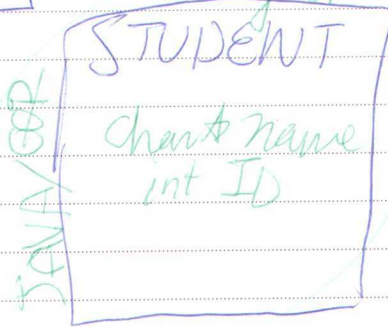 STUDENT
char* name
int ID
JAVA/OOP